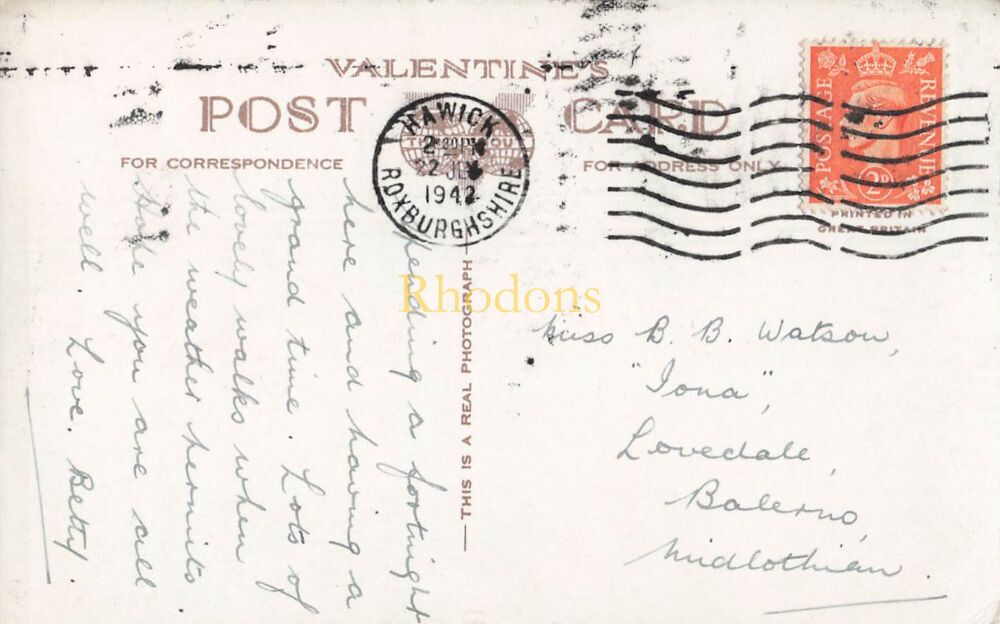 VALENTINE'S
POST CARD
FOR CORRESPONDENCE
FOR ADDRESS ONLY
HAWICK
22
1942
ROXBURGHSHIRE
POSTAGE
REVENUE
2D
PRINTED IN
GREAT BRITAIN
THIS IS A REAL PHOTOGRAPH
Rhodons
Spending a fortnight
here and having a
grand time. Lots of
lovely walks when
the weather permits
Hope you are all
well. Love. Betty.
Miss B. B. Watson,
"Iona",
Lovedale,
Balerno,
Midlothian.